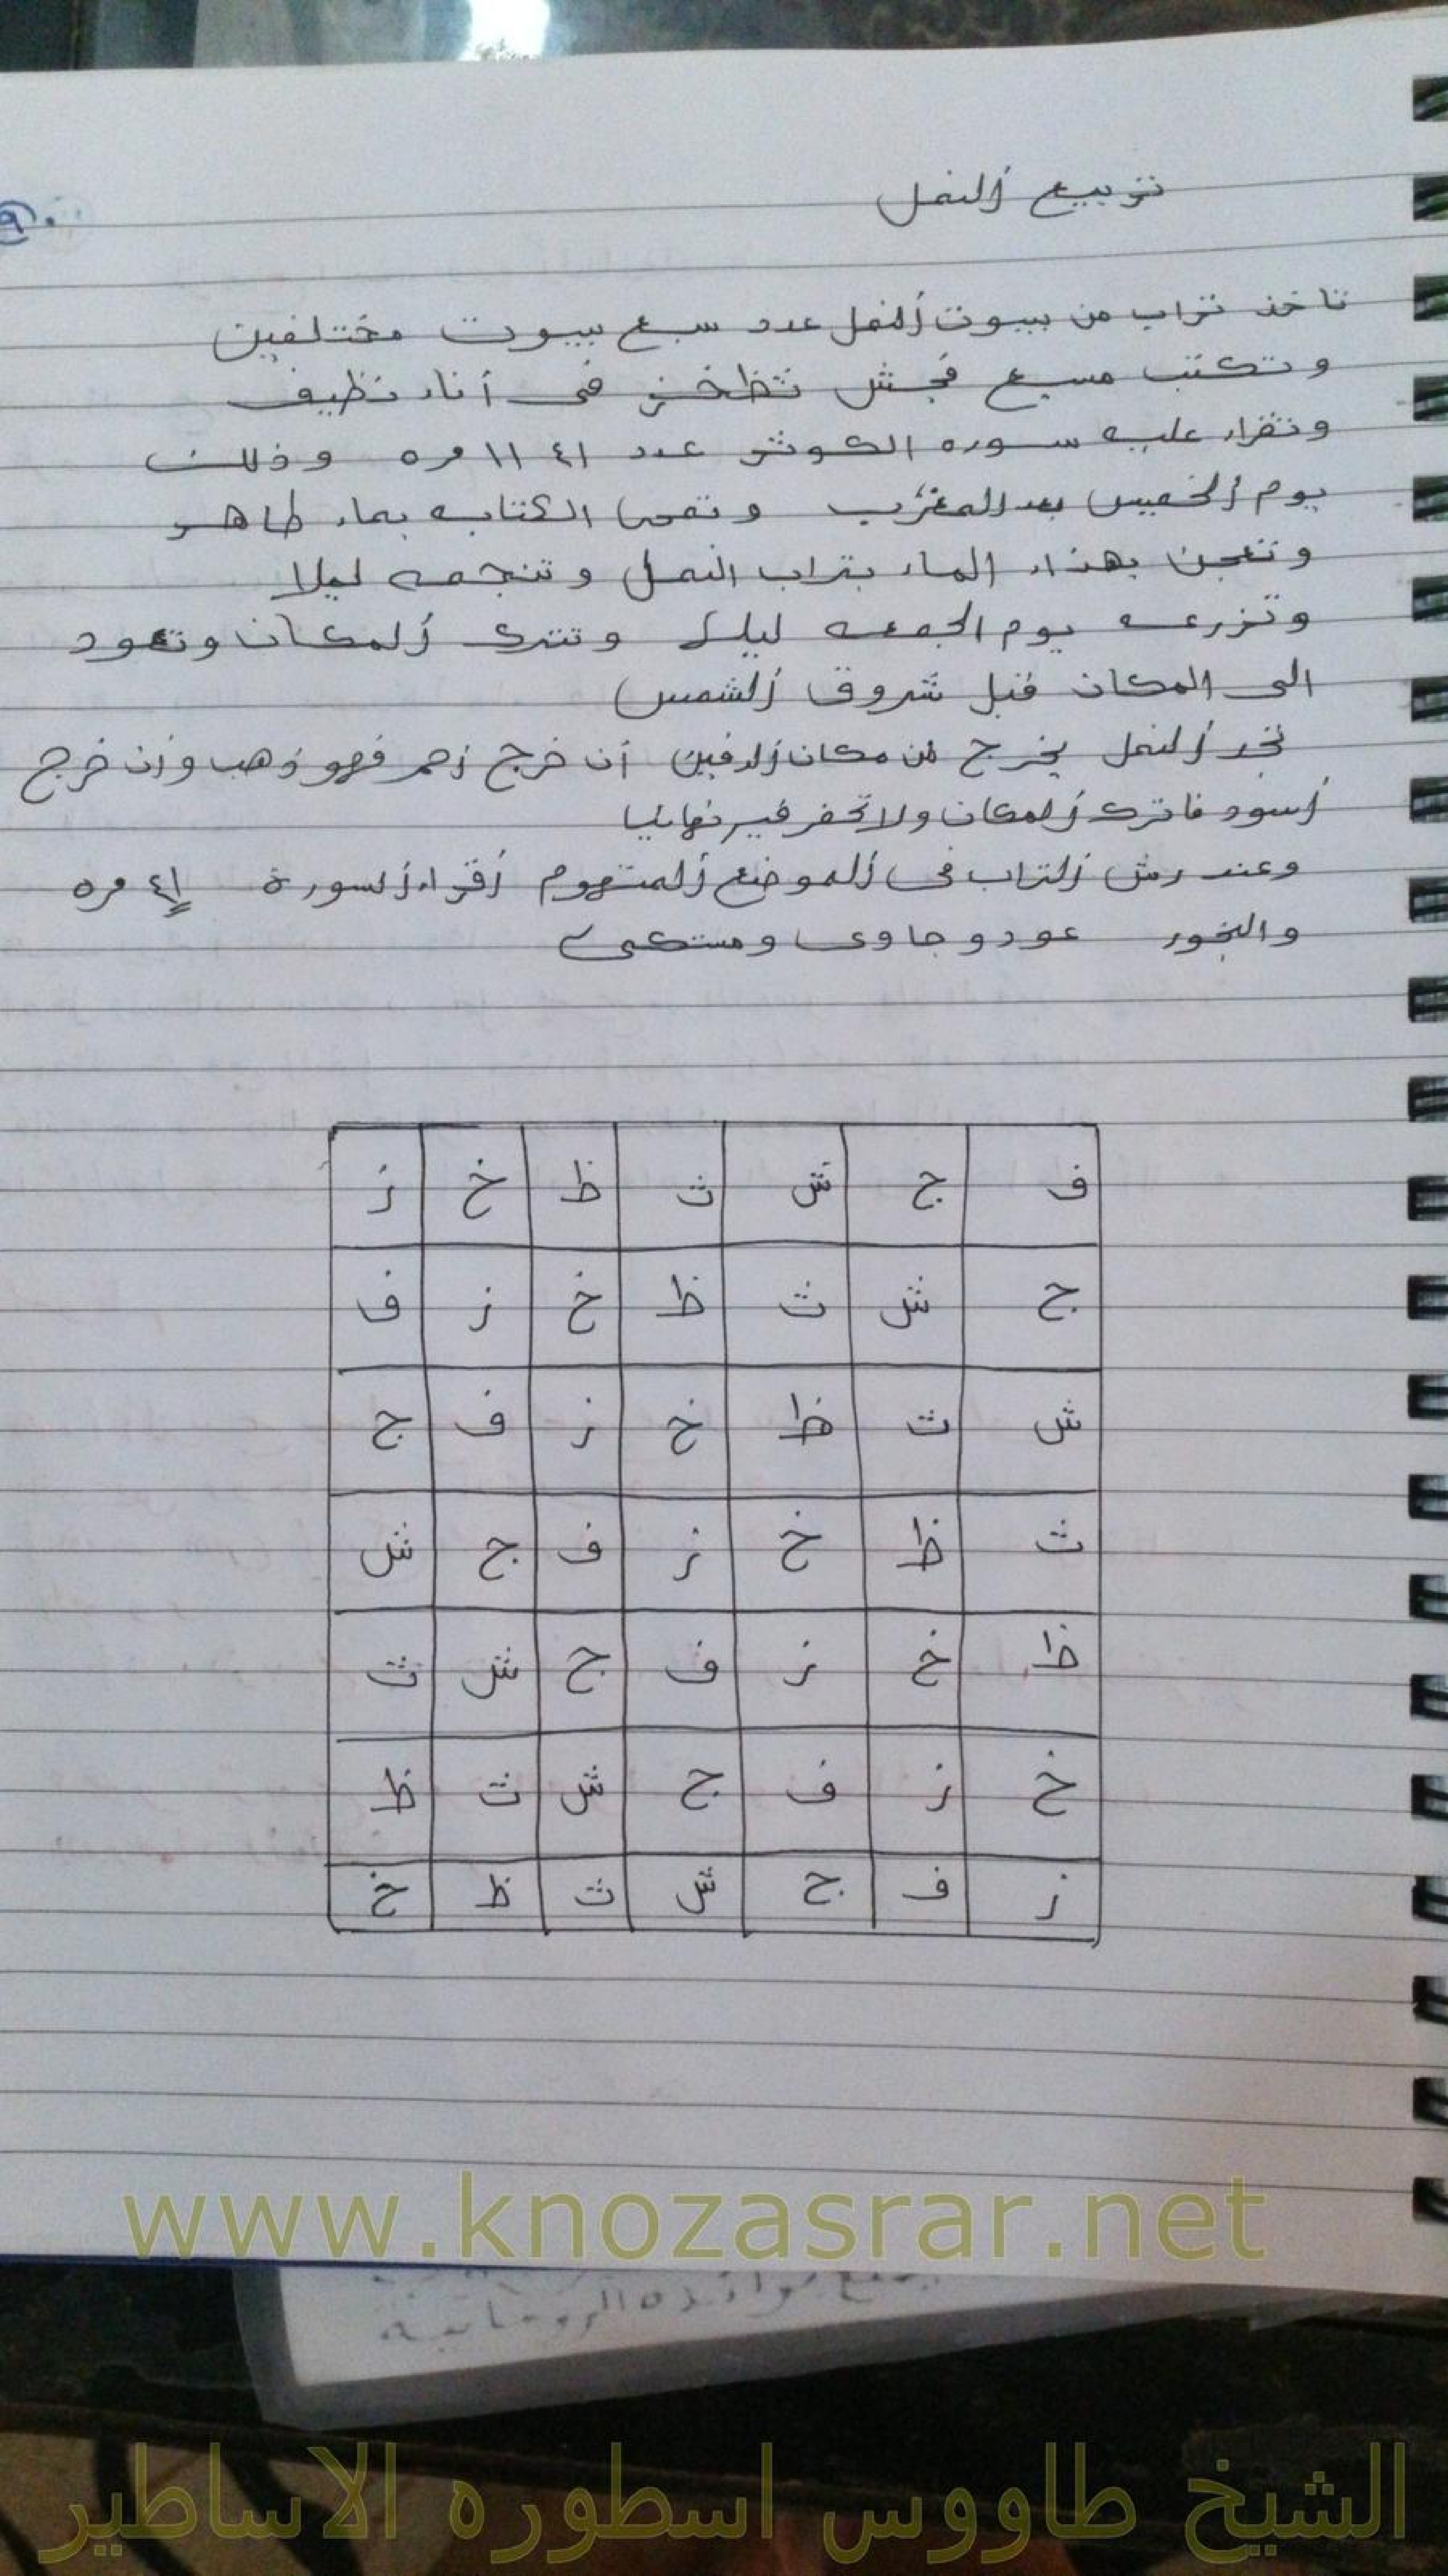 تربيع النمل
تاخذ تراب من بيوت النمل عدد سبع بيوت مختلفين
وتكتب مسبع فجش ثظخز فى أناء نظيف
وتقراء عليه سوره الكوثر عدد ١١٤١ مره وذلك
يوم الخميس بعد المغرب وتمحى الكتابه بماء طاهر
وتعجن بهذاء الماء بتراب النمل وتنجمه ليلا
وتزرعه يوم الجمعه ليلا وتترك المكان وتعود
الى المكان قبل شروق الشمس
تجد النمل يخرج من مكان الدفين أن خرج احمر فهو ذهب وان خرج
أسود فاترك المكان ولا تحفر فيه نهائيا
وعند رش التراب فى الموضع المتهوم أقراء السورة ٤١ مره
والبخور عود وجاوى ومستكى
ف ج ش ث ظ خ ز
ج ش ث ظ خ ز ف
ش ث ظ خ ز ف ج
ث ظ خ ز ف ج ش
ظ خ ز ف ج ش ث
خ ز ف ج ش ث ظ
ز ف ج ش ث ظ خ
www.knozasrar.net
الشيخ طاووس اسطوره الاساطير